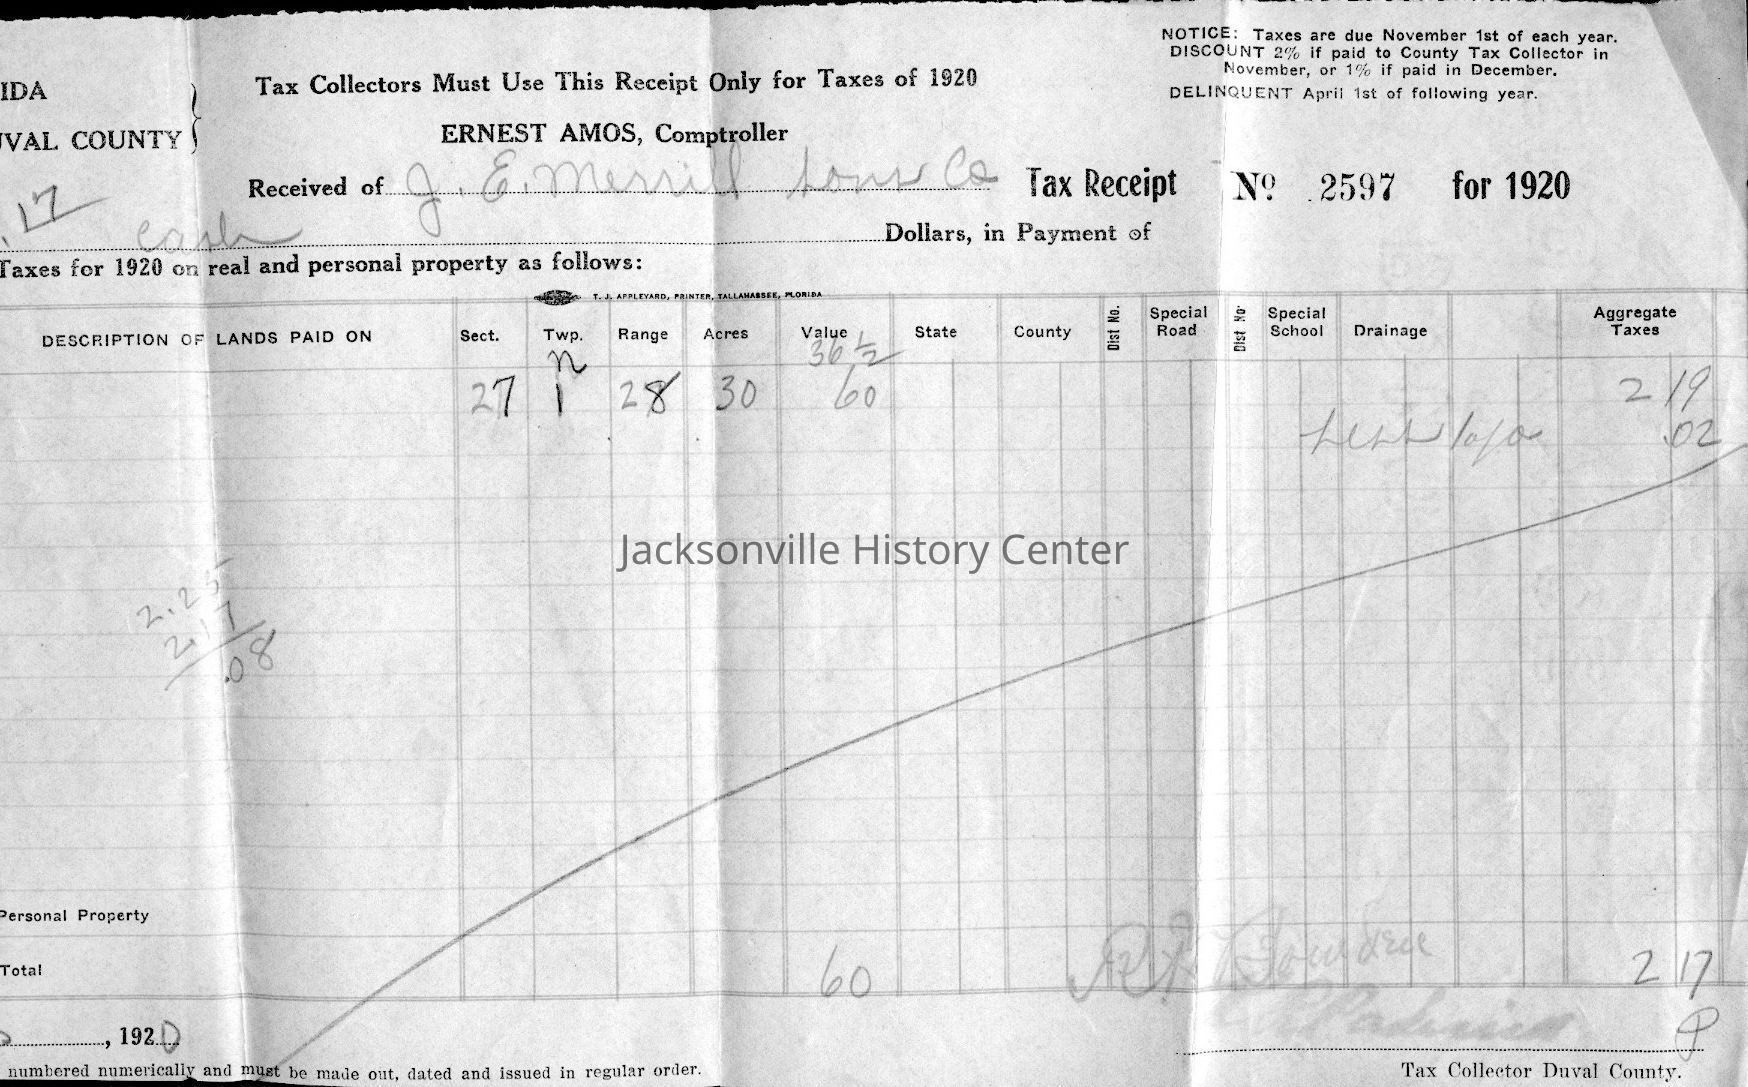 NOTICE: Taxes are due November 1st of each year.
DISCOUNT 2% if paid to County Tax Collector in
November, or 1% if paid in December.
DELINQUENT April 1st of following year.
IDA
UVAL COUNTY
Tax Collectors Must Use This Receipt Only for Taxes of 1920
ERNEST AMOS, Comptroller
Received of J. E. Merrill Sons Co Tax Receipt No 2597 for 1920
.17 cash Dollars, in Payment of
Taxes for 1920 on real and personal property as follows:
T. J. APPLEYARD, PRINTER, TALLAHASSEE, FLORIDA
DESCRIPTION OF LANDS PAID ON Sect. Twp. Range Acres Value State County Dist No. Special Road Dist No. Special School Drainage Aggregate Taxes
n 36 1/2
27 1 28 30 60 2 19
Less 1% .02
Jacksonville History Center
2.25
2.17
.08
Personal Property
Total 60 2 17
R. F. Bowden
, 1920
Tax Collector Duval County.
numbered numerically and must be made out, dated and issued in regular order.